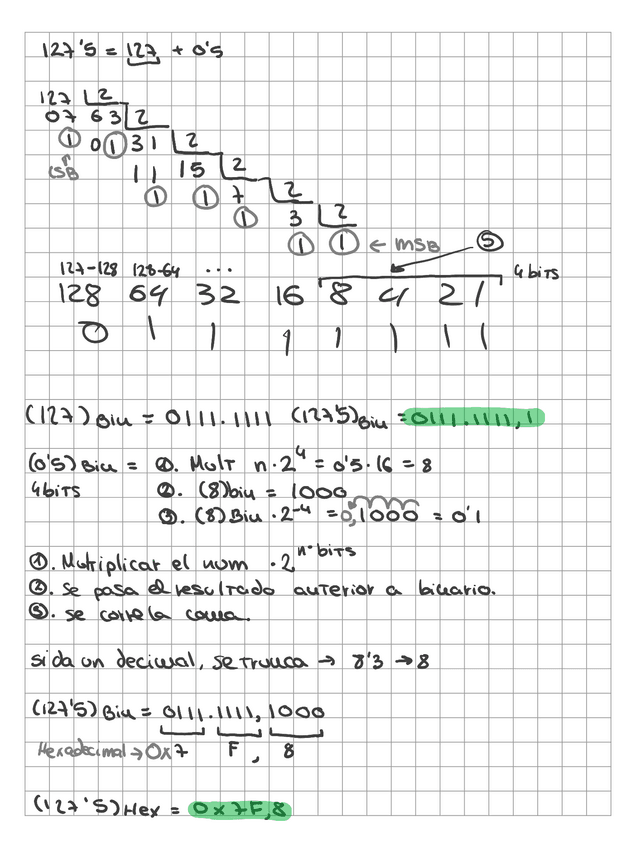 127'5 = 127 + 0'5
127 2
07 63 2
1 0 1 31 2
LSB 11 15 2
1 1 7 2
1 3 2
1 1 ← MSB 5
127-128 128-64 ... 4 bits
128 64 32 16 8 4 2 1
0 1 1 1 1 1 1 1
(127)Bin = 0111.1111 (127'5)Bin = 0111.1111,1
(0'5)Bin = 1. Mult n·2⁴ = 0'5·16 = 8
4 bits 2. (8)bin = 1000
3. (8)Bin · 2⁻⁴ = 0,1000 = 0'1
1. Multiplicar el num ·2^nº bits
2. Se pasa el resultado anterior a binario.
3. se corre la coma.
si da un decimal, se trunca → 8'3 → 8
(127'5)Bin = 0111.1111, 1000
Hexadecimal → 0x7 F, 8
(127'5)Hex = 0x7F,8